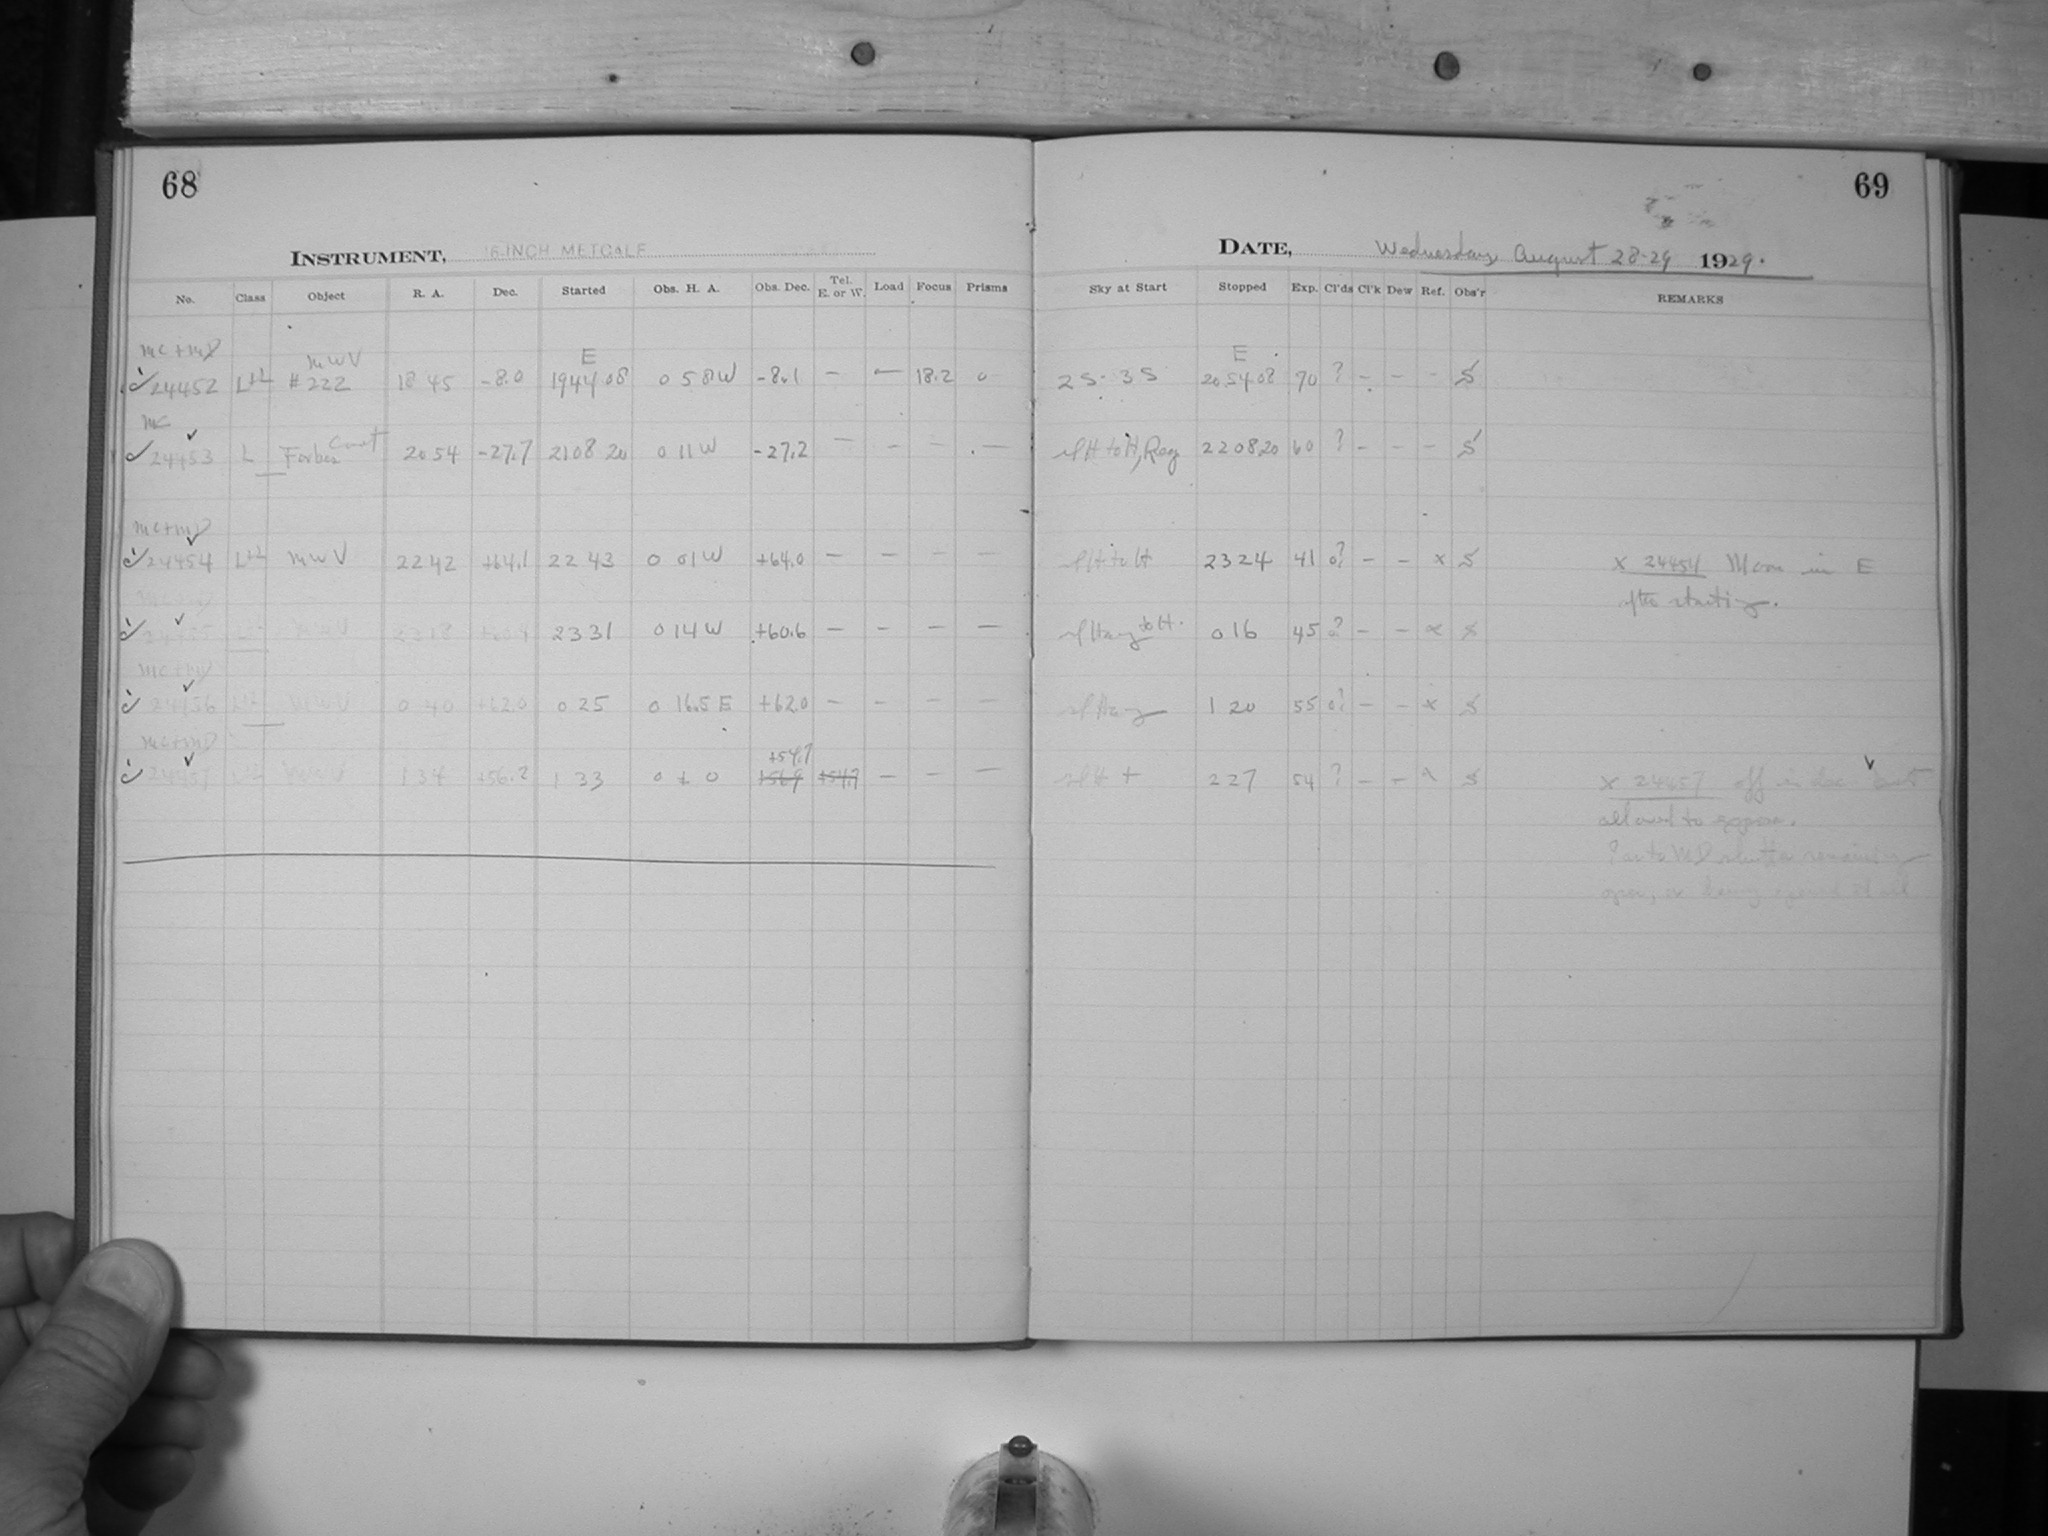 68
INSTRUMENT, 16-INCH METCALF
No. Class Object R. A. Dec. Started Obs. H. A. Obs. Dec. Tel. E. or W. Load Focus Prisms
MC+MD MWV E
24452 L+L #222 18 45 -8.0 1944 08 0 58W -8.1 – – 18.2 0
MC
24453 L Forbes Comet 20 54 -27.7 2108 20 0 11W -27.2 – – – –
MC+MD
24454 L+L MWV 22 42 +64.1 22 43 0 01W +64.0 – – – –
MC+MD
24455 L+L MWV 23 18 23 31 0 14W +60.6 – – – –
MC+MD
24456 L+L MWV 0 40 +62.0 0 25 0 16.5 E +62.0 – – – –
MC+MD +54.7
24457 L+L MWV 1 34 +56.2 1 33 0 ± 0 +56.9 +54.7 – – –
69
DATE, Wednesday, August 28-29 1929.
Sky at Start Stopped Exp. Cl'ds Cl'k Dew Ref. Obs'r REMARKS
E
2S-3S 20 54 08 70 ? – – – S
H to H, 22 08 20 60 ? – – – S
H to H 23 24 41 0? – – x S x 24454 Moon in E
after starting.
to H. 0 16 45 0? – – x S
1 20 55 0? – – x S
H + 2 27 54 ? – – x S x 24457 off in dec. but
allowed to expose.
? as to MD shutter remaining
open, or being opened at all